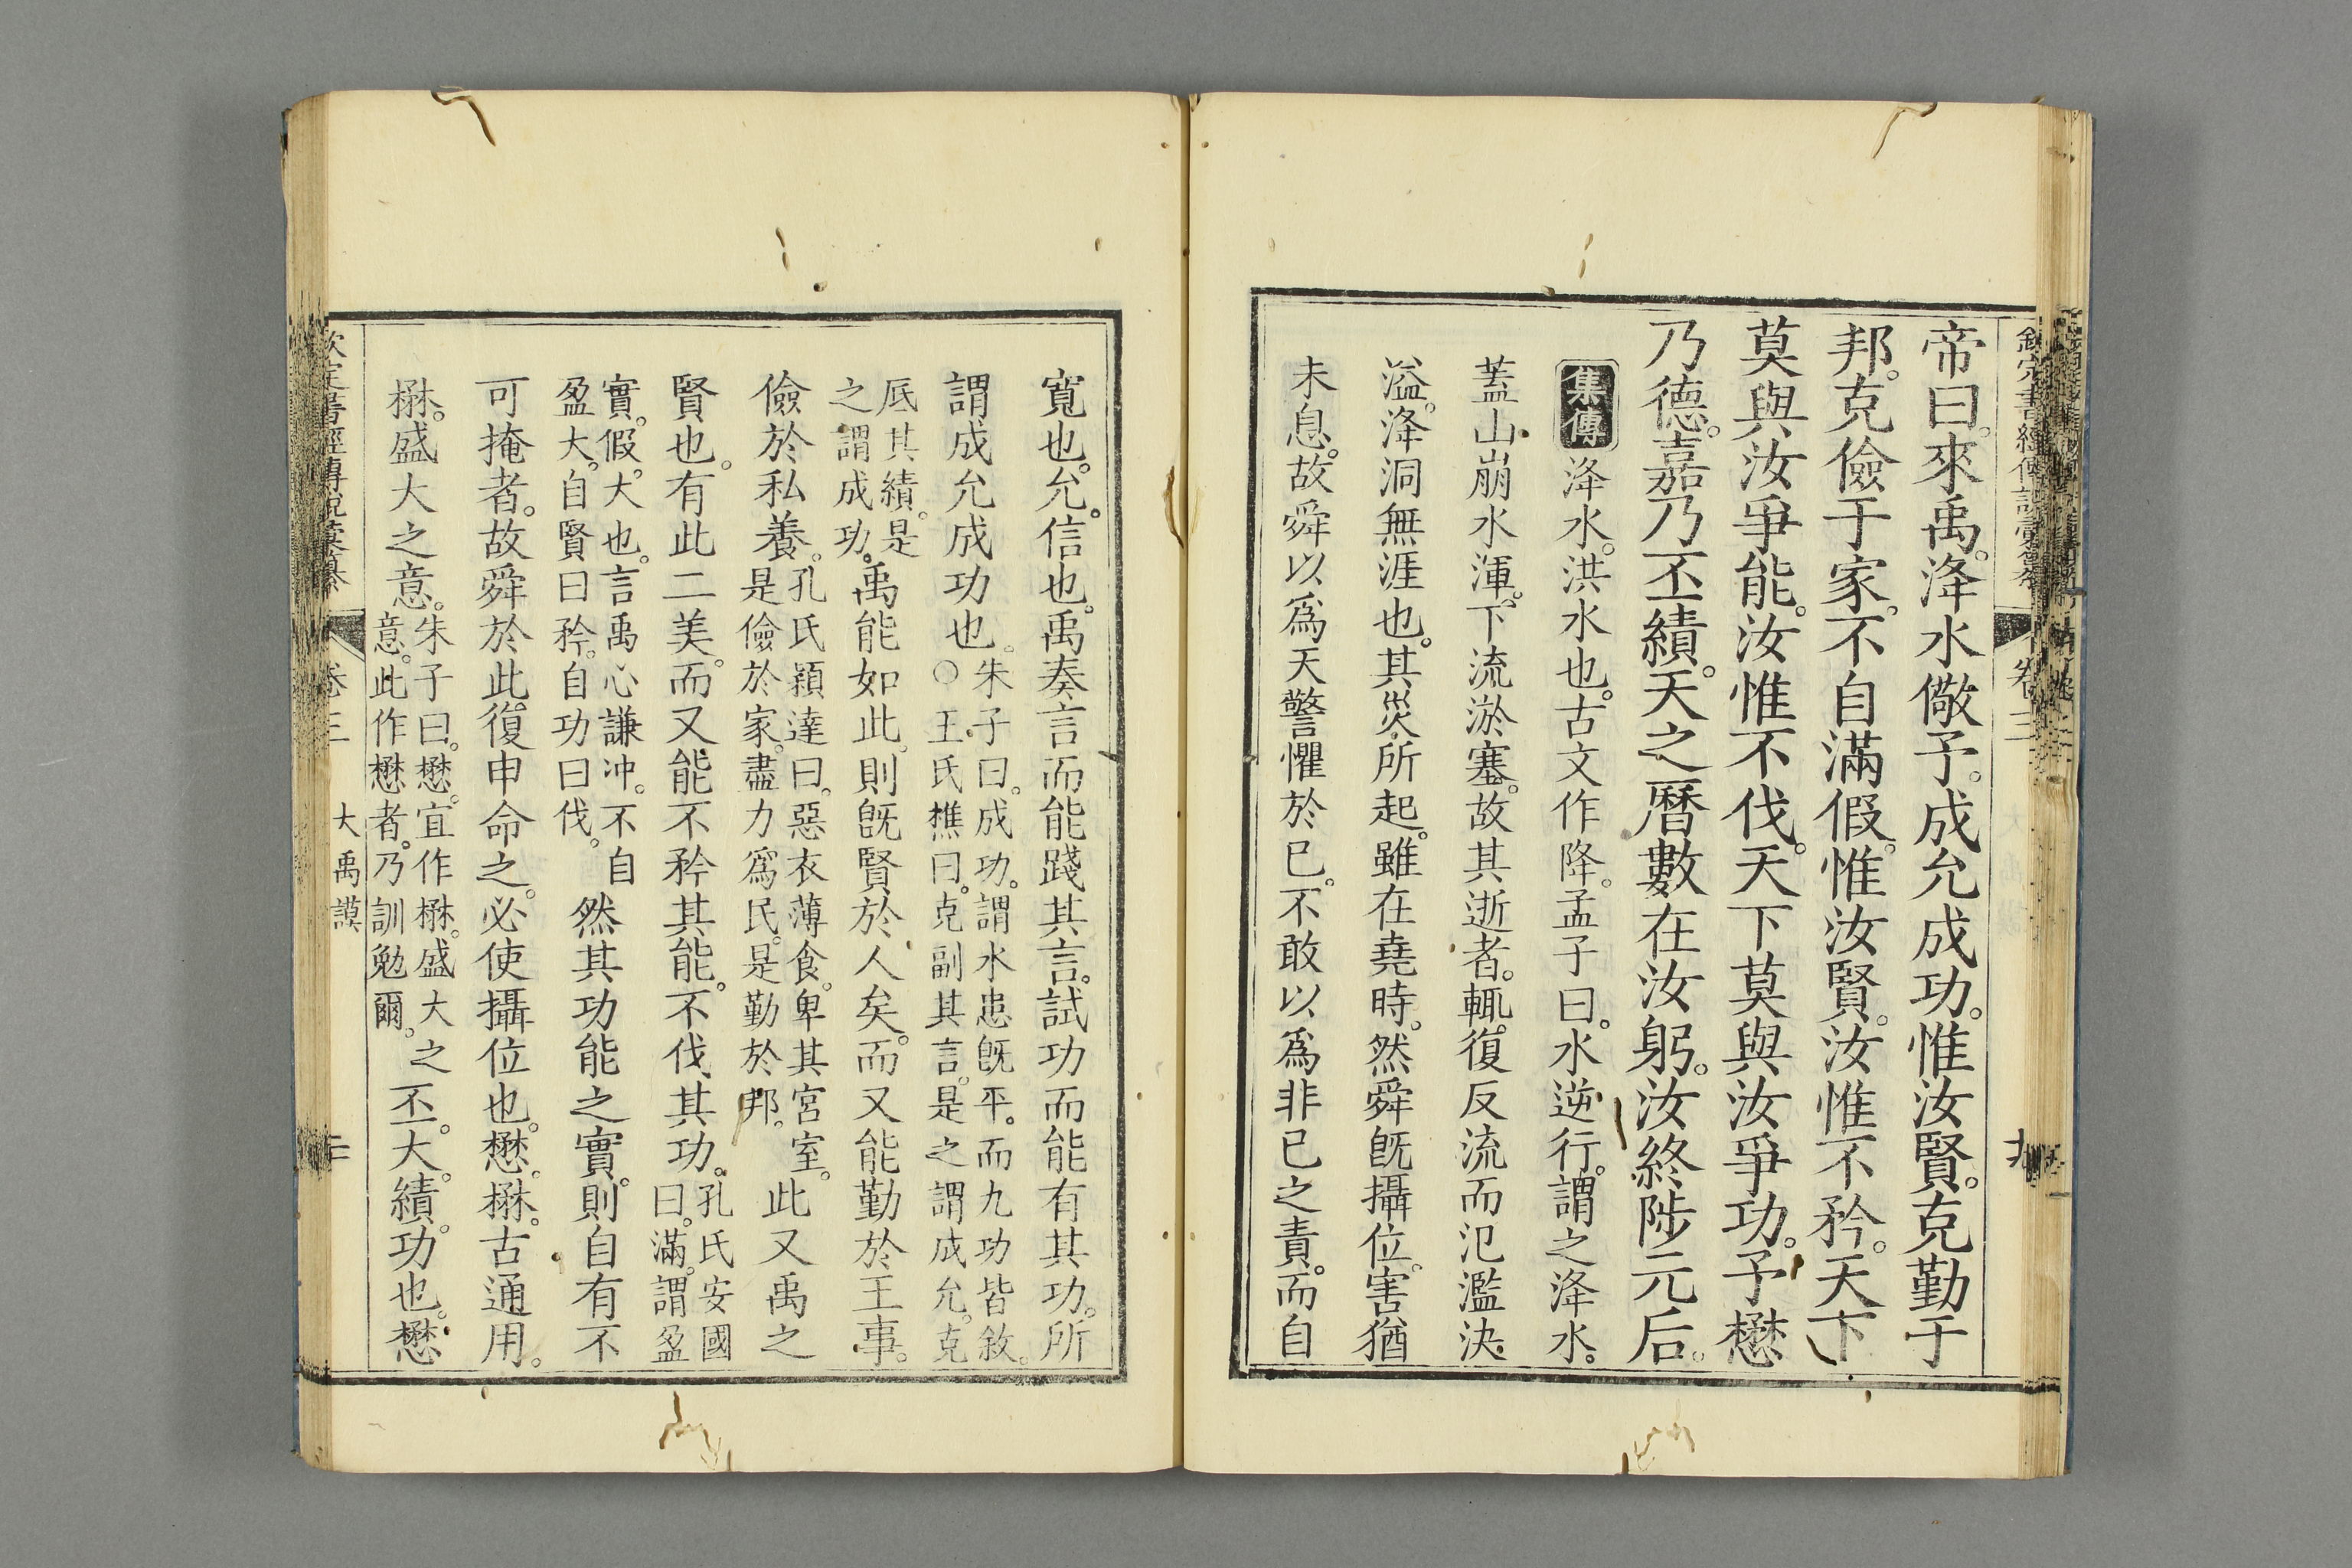 帝曰。來禹。洚水儆予。成允成功。惟汝賢。克勤于
邦。克儉于家。不自滿假。惟汝賢。汝惟不矜。天下
莫與汝爭能。汝惟不伐。天下莫與汝爭功。予懋
乃德。嘉乃丕績。天之曆數在汝躬。汝終陟元后。
集傳 洚水。洪水也。古文作降。孟子曰。水逆行。謂之洚水。
蓋山崩水渾。下流淤塞。故其逝者。輒復反流而氾濫決
溢。洚洞無涯也。其災所起。雖在堯時。然舜旣攝位。害猶
未息。故舜以爲天警懼於己。不敢以爲非己之責。而自
寬也。允。信也。禹奏言而能踐其言。試功而能有其功。所
謂成允成功也。朱子曰。成功。謂水患旣平。而九功皆敘。○王氏樵曰。克副其言。是之謂成允。克
厎其績。是之謂成功。禹能如此。則旣賢於人矣。而又能勤於王事。
儉於私養。孔氏穎達曰。惡衣薄食。卑其宮室。是儉於家。盡力爲民。是勤於邦。此又禹之
賢也。有此二美。而又能不矜其能。不伐其功。孔氏安國曰。滿。謂盈
實。假。大也。言禹心謙冲。不自盈大。自賢曰矜。自功曰伐。然其功能之實。則自有不
可掩者。故舜於此。復申命之。必使攝位也。懋。楙。古通用。
楙。盛大之意。朱子曰。懋。宜作楙。盛大之意。此作懋者。乃訓勉爾。丕。大。績。功也。懋
卷三
大禹謨